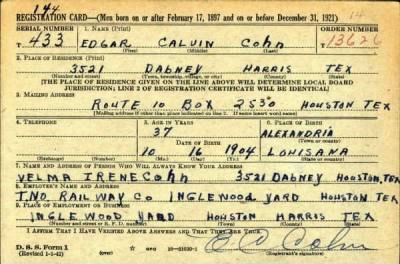 144
REGISTRATION CARD—(Men born on or after February 17, 1897 and on or before December 31, 1921)
SERIAL NUMBER 1. NAME (Print) ORDER NUMBER
T 433 EDGAR CALVIN Cohn 13626
(First) (Middle) (Last)
2. PLACE OF RESIDENCE (Print)
3521 DABNEY HARRIS TEX
(Number and street) (Town, township, village, or city) (County) (State)
[THE PLACE OF RESIDENCE GIVEN ON THE LINE ABOVE WILL DETERMINE LOCAL BOARD
JURISDICTION; LINE 2 OF REGISTRATION CERTIFICATE WILL BE IDENTICAL]
3. MAILING ADDRESS
ROUTE 10 BOX 2530 HOUSTON TEX
[Mailing address if other than place indicated on line 2. If same insert word same]
4. TELEPHONE 5. AGE IN YEARS 6. PLACE OF BIRTH
37 ALEXANDRIA
DATE OF BIRTH (Town or county)
10 16 1904 LOUISANA
(Exchange) (Number) (Mo.) (Day) (Yr.) (State or country)
7. NAME AND ADDRESS OF PERSON WHO WILL ALWAYS KNOW YOUR ADDRESS
VELMA IRENE Cohn 3521 DABNEY HOUSTON, TEX
8. EMPLOYER'S NAME AND ADDRESS
T.NO. RAILWAY Co INGLEWOOD YARD HOUSTON TEX
9. PLACE OF EMPLOYMENT OR BUSINESS
INGLEWOOD YARD HOUSTON HARRIS TEX
(Number and street or R. F. D. number) (Town) (County) (State)
I AFFIRM THAT I HAVE VERIFIED ABOVE ANSWERS AND THAT THEY ARE TRUE.
D. S. S. Form 1
(Revised 1-1-42) (Registrant's signature)
E C Cohn